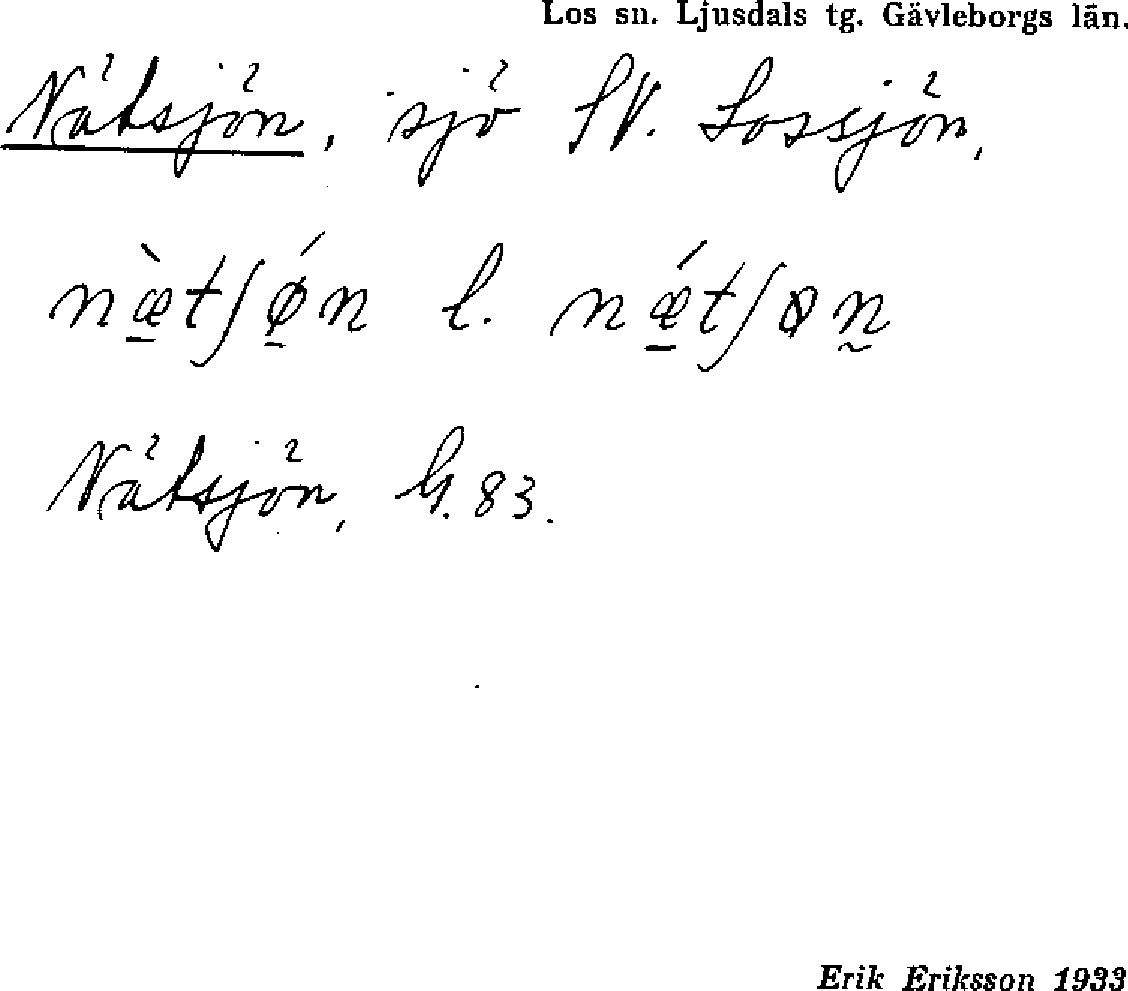 Los sn. Ljusdals tg. Gävleborgs län.
Nätsjön, sjö SV. Lossjön,
næ̠̀tʃǿ̠n l. nǽ̠tʃøn̰
Nätsjön, G. 83.
Erik Eriksson 1933